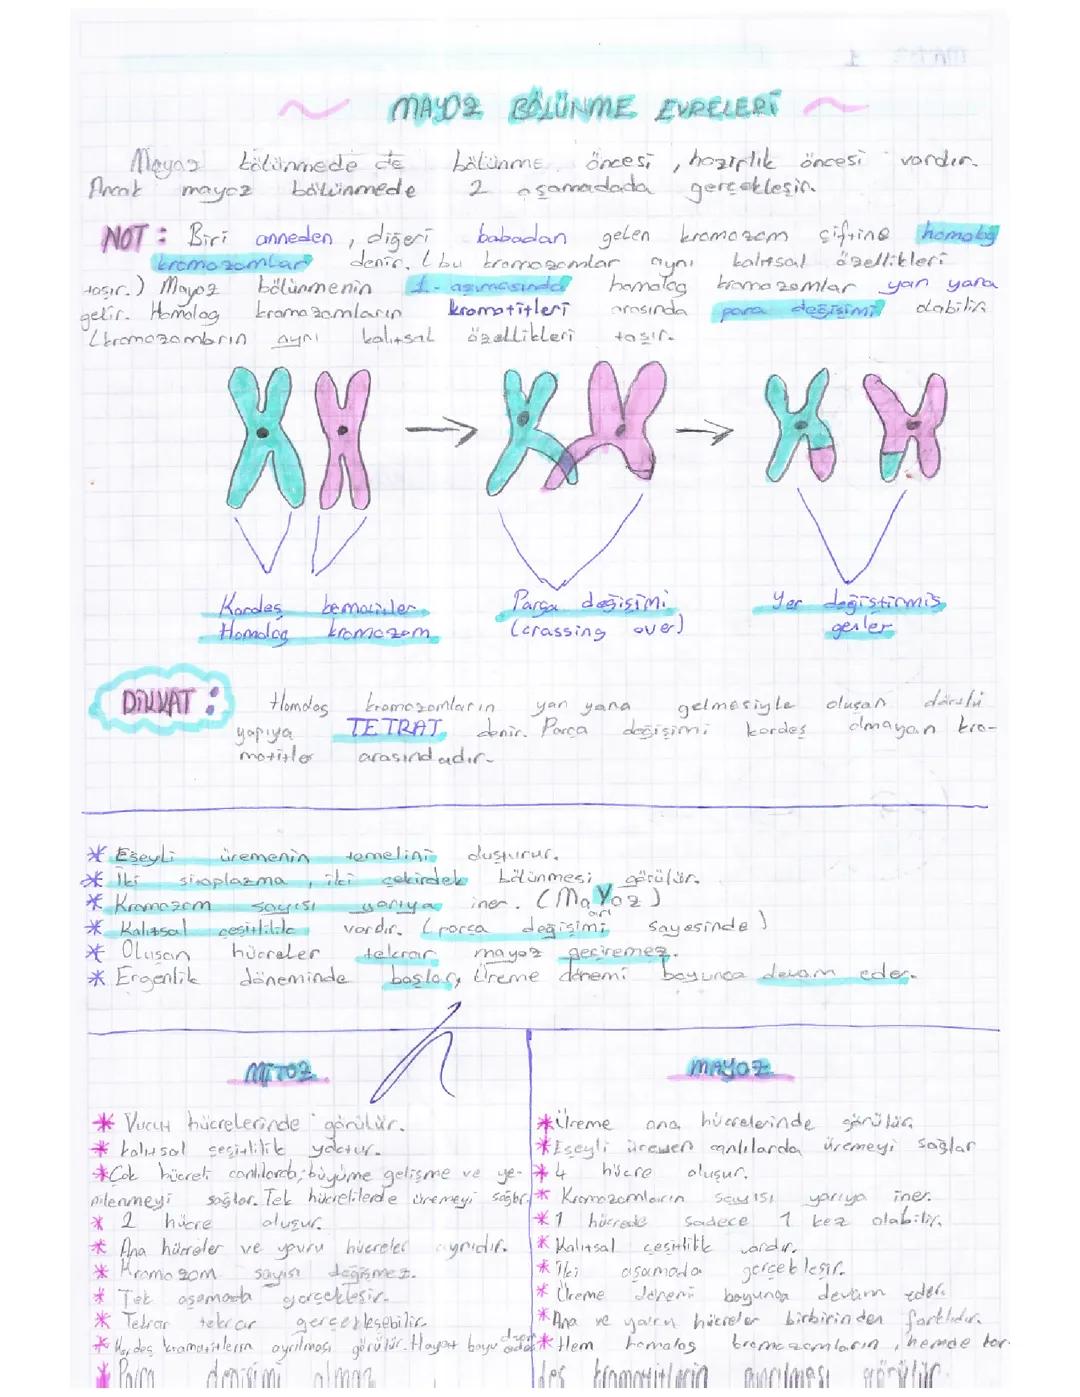 MAYOZ BÖLÜNME EVRELERİ
Mayoz bölünmede de bölünme öncesi, hazırlık öncesi vardır.
Ancak mayoz bölünmede 2 aşamadada gerçekleşir.
NOT: Biri anneden, diğeri babadan gelen kromozom çiftine homolog
kromozomlar denir. (bu kromozomlar aynı kalıtsal özellikleri
taşır.) Mayoz bölünmenin 1. aşamasında homolog kromozomlar yan yana
gelir. Homolog kromozomların kromotitleri arasında parça değişimi olabilir.
(kromozomların aynı kalıtsal özellikleri taşır.
Kardeş kromatitler
Homolog kromozom
Parça değişimi
(crossing over)
Yer değiştirmiş
genler
DİKKAT: Homolog kromozomların yan yana gelmesiyle oluşan dörtlü
yapıya TETRAT denir. Parça değişimi kardeş olmayan kro-
motitler arasındadır.
* Eşeyli üremenin temelini oluşturur.
* İki sitoplazma, iki çekirdek bölünmesi görülür.
* Kromozom sayısı yarıya iner. (MaYoz)
arı
* Kalıtsal çeşitlilik vardır. (parça değişimi sayesinde)
* Oluşan hücreler tekrar mayoz geçiremez.
* Ergenlik döneminde başlar, Üreme dönemi boyunca devam eder.
MİTOZ
* Vücut hücrelerinde görülür.
* kalıtsal çeşitlilik yoktur.
* Çok hücreli canlılarda; büyüme gelişme ve ye-
nilenmeyi sağlar. Tek hücrelilerde üremeyi sağlar.
* 2 hücre oluşur.
* Ana hücreler ve yavru hücreler aynıdır.
* Kromozom sayısı değişmez.
* Tek aşamada gerçekleşir.
* Tekrar tekrar gerçekleşebilir.
* Kardeş kromatitlerin ayrılması görülür. Hayat boyu devam eder
* Parça değişimi olmaz
MAYOZ
* Üreme ana hücrelerinde görülür.
* Eşeyli üreyen canlılarda üremeyi sağlar
* 4 hücre oluşur.
* Kromozomların sayısı yarıya iner.
* 1 hücrede sadece 1 kez olabilir.
* Kalıtsal çeşitlilik vardır.
* İki aşamada gerçekleşir.
* Üreme dönemi boyunca devam eder.
* Ana ve yavru hücreler birbirinden farklıdır.
* Hem homolog kromozomların, hemde kar-
deş kromatitlerin ayrılması görülür.